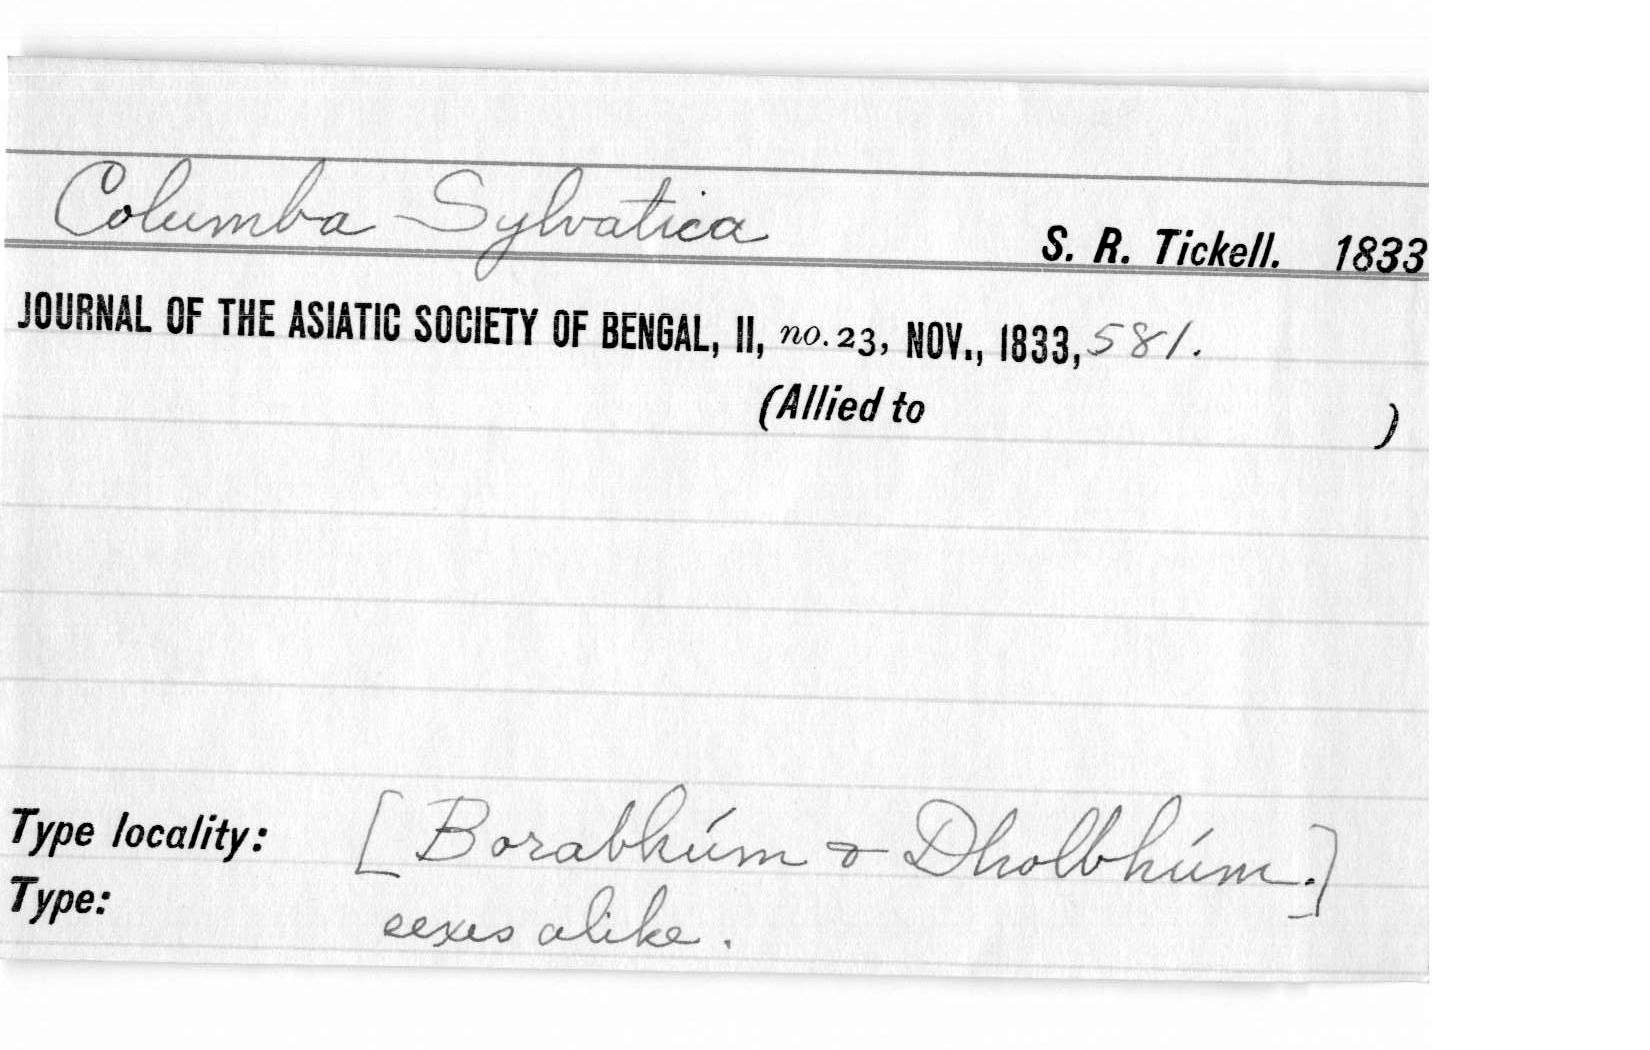 Columba Sylvatica S. R. Tickell. 1833
JOURNAL OF THE ASIATIC SOCIETY OF BENGAL, II, no. 23, NOV., 1833, 581.
(Allied to )
Type locality: [Borabhúm & Dholbhúm.]
Type: sexes alike.